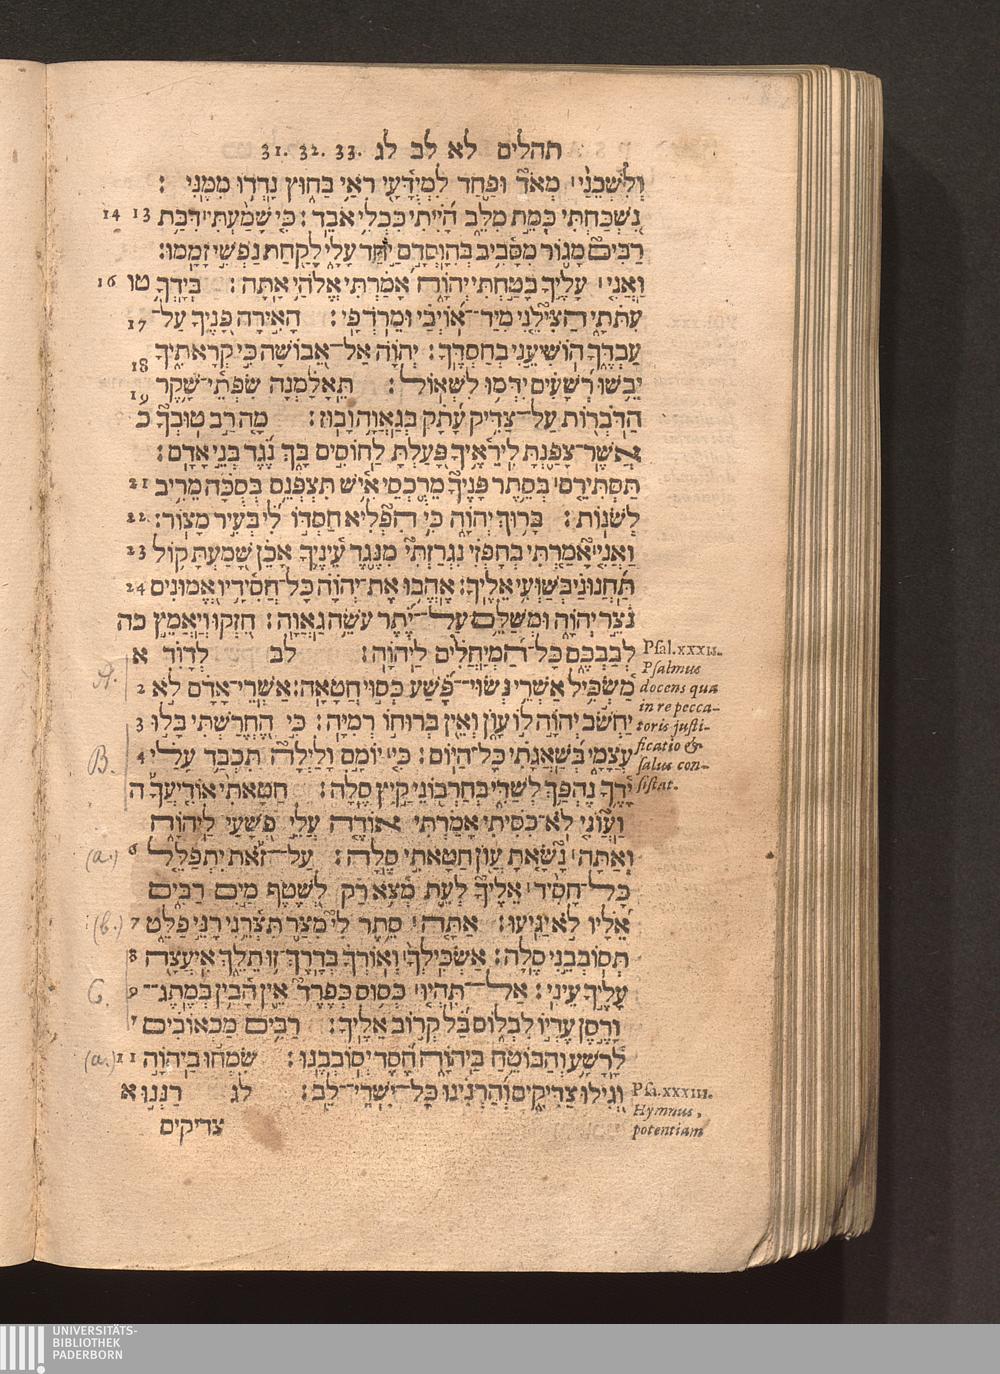 תהלים לא לב לג 31. 32. 33.
וְלִשְׁכֵנַי מְאֹד וּפַחַד לִמְיֻדָּעָי רֹאַי בַּחוּץ נָדְדוּ מִמֶּנִּי׃
נִשְׁכַּחְתִּי כְּמֵת מִלֵּב הָיִיתִי כִּכְלִי אֹבֵד׃ כִּי שָׁמַעְתִּי דִּבַּת 13 14
רַבִּים מָגוֹר מִסָּבִיב בְּהִוָּסְדָם יַחַד עָלַי לָקַחַת נַפְשִׁי זָמָמוּ׃
וַאֲנִי עָלֶיךָ בָטַחְתִּי יְהוָה אָמַרְתִּי אֱלֹהַי אָתָּה׃ בְּיָדְךָ טו 16
עִתֹּתָי הַצִּילֵנִי מִיַּד־אוֹיְבַי וּמֵרֹדְפָי׃ הָאִירָה פָנֶיךָ עַל־ 17
עַבְדֶּךָ הוֹשִׁיעֵנִי בְחַסְדֶּךָ׃ יְהוָה אַל־אֵבוֹשָׁה כִּי קְרָאתִיךָ 18
יֵבֹשׁוּ רְשָׁעִים יִדְּמוּ לִשְׁאוֹל׃ תֵּאָלַמְנָה שִׂפְתֵי־שָׁקֶר 19
הַדֹּבְרוֹת עַל־צַדִּיק עָתָק בְּגַאֲוָה וָבוּז׃ מָה רַב טוּבְךָ כ
אֲשֶׁר־צָפַנְתָּ לִּירֵאֶיךָ פָּעַלְתָּ לַחוֹסִים בָּךְ נֶגֶד בְּנֵי אָדָם׃
תַּסְתִּירֵם בְּסֵתֶר פָּנֶיךָ מֵרֻכְסֵי אִישׁ תִּצְפְּנֵם בְּסֻכָּה מֵרִיב 21
לְשֹׁנוֹת׃ בָּרוּךְ יְהוָה כִּי הִפְלִיא חַסְדּוֹ לִי בְּעִיר מָצוֹר׃ 22
וַאֲנִי אָמַרְתִּי בְחָפְזִי נִגְרַזְתִּי מִנֶּגֶד עֵינֶיךָ אָכֵן שָׁמַעְתָּ קוֹל 23
תַּחֲנוּנַי בְּשַׁוְּעִי אֵלֶיךָ׃ אֶהֱבוּ אֶת־יְהוָה כָּל־חֲסִידָיו אֱמוּנִים 24
נֹצֵר יְהוָה וּמְשַׁלֵּם עַל־יֶתֶר עֹשֵׂה גַאֲוָה׃ חִזְקוּ וְיַאֲמֵץ כה
לְבַבְכֶם כָּל־הַמְיַחֲלִים לַיהוָה׃ לב לְדָוִד א
מַשְׂכִּיל אַשְׁרֵי נְשׂוּי־פֶּשַׁע כְּסוּי חֲטָאָה׃ אַשְׁרֵי־אָדָם לֹא 2
יַחְשֹׁב יְהוָה לוֹ עָוֹן וְאֵין בְּרוּחוֹ רְמִיָּה׃ כִּי הֶחֱרַשְׁתִּי בָּלוּ 3
עֲצָמָי בְּשַׁאֲגָתִי כָּל־הַיּוֹם׃ כִּי יוֹמָם וָלַיְלָה תִּכְבַּד עָלַי 4
יָדֶךָ נֶהְפַּךְ לְשַׁדִּי בְּחַרְבֹנֵי קַיִץ סֶלָה׃ חַטָּאתִי אוֹדִיעֲךָ ה
וַעֲוֹנִי לֹא־כִסִּיתִי אָמַרְתִּי אוֹדֶה עֲלֵי פְשָׁעַי לַיהוָה
וְאַתָּה נָשָׂאתָ עֲוֹן חַטָּאתִי סֶלָה׃ עַל־זֹאת יִתְפַּלֵּל 6
כָּל־חָסִיד אֵלֶיךָ לְעֵת מְצֹא רַק לְשֵׁטֶף מַיִם רַבִּים
אֵלָיו לֹא יַגִּיעוּ׃ אַתָּה סֵתֶר לִי מִצַּר תִּצְּרֵנִי רָנֵּי פַלֵּט 7
תְּסוֹבְבֵנִי סֶלָה׃ אַשְׂכִּילְךָ וְאוֹרְךָ בְּדֶרֶךְ־זוּ תֵלֵךְ אִיעֲצָה 8
עָלֶיךָ עֵינִי׃ אַל־תִּהְיוּ כְּסוּס כְּפֶרֶד אֵין הָבִין בְּמֶתֶג־ 9
וָרֶסֶן עֶדְיוֹ לִבְלוֹם בַּל קְרוֹב אֵלֶיךָ׃ רַבִּים מַכְאוֹבִים י
לָרָשָׁע וְהַבּוֹטֵחַ בַּיהוָה חֶסֶד יְסוֹבְבֶנּוּ׃ שִׂמְחוּ בַיהוָה 11
וְגִילוּ צַדִּיקִים וְהַרְנִינוּ כָּל־יִשְׁרֵי־לֵב׃ לג רַנְּנוּ א
צדיקים
Psal.XXXII.
Psalmus
docens qua
in re pecca-
toris justi-
ficatio &
salus con-
sistat.
Psa.XXXIII.
Hymnus,
potentiam
A.
B.
(a.)
(b.)
C.
(a.)
UNIVERSITÄTS-
BIBLIOTHEK
PADERBORN